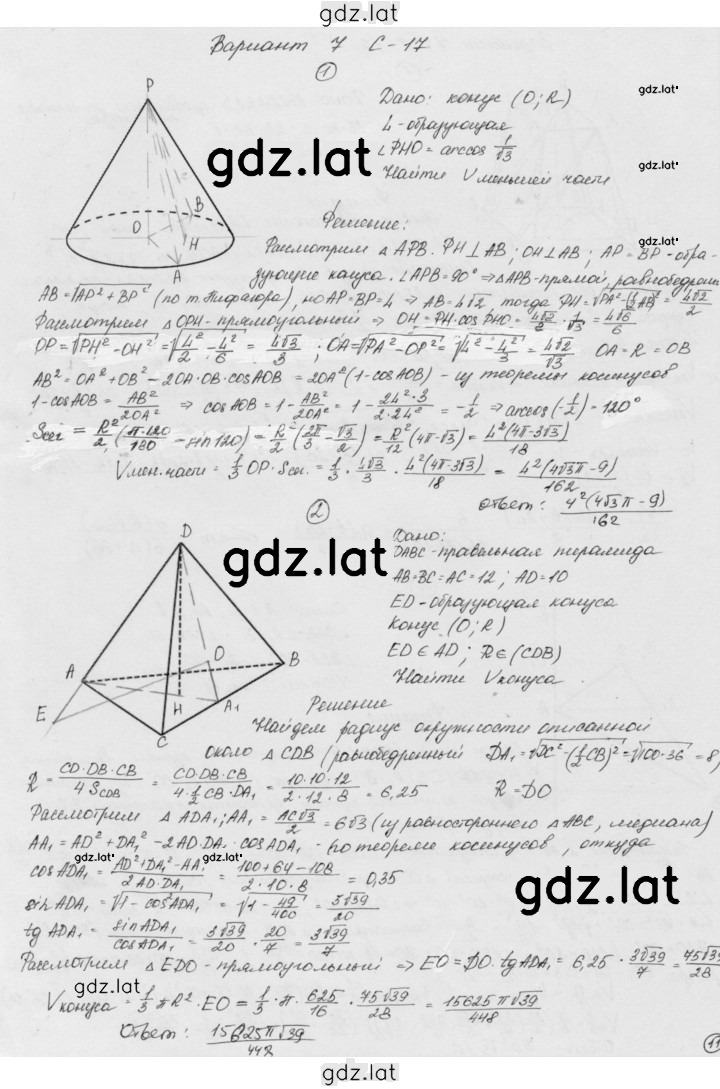 gdz.lat
Вариант 7 С-17
1
P
O
B
H
A
Дано: конус (O; R)
gdz.lat
4-образующая
∠PHO = arccos 1/√3
Найти V меньшей части
gdz.lat
Решение:
Рассмотрим △ APB. PH⊥AB; OH⊥AB; AP = BP - обра-
зующие конуса. ∠APB = 90° ⇒ △APB-прямой, равнобедрен
AB = √AP² + BP² (по т. Пифагора), но AP = BP = 4 ⇒ AB = 4√2 тогда PH = √PA² - (1/2 AB)² = 4√2/2
Рассмотрим △ OPH - прямоугольный ⇒ OH = PH · cos PHO = 4√2/2 · 1/√3 = 4√6/6
OP = √PH² - OH² = √4²/2 - 4²/6 = 4√3/3; OA = √PA² - OP² = √4² - 4²/3 = 4√2/√3 OA = R = OB
AB² = OA² + OB² - 2OA · OB · cos AOB = 2OA² (1 - cos AOB) - из теоремы косинусов
1 - cos AOB = AB²/2OA² ⇒ cos AOB = 1 - AB²/2OA² = 1 - 24² · 3/2 · 24² = -1/2 ⇒ arccos(-1/2) = 120°
Sсег = R²/2 (π · 120/180 - sin 120) = R²/2 (2π/3 - √3/2) = R²/12 (4π - √3) = 4²(4π - 3√3)/18
V мен. части = 1/3 OP · Sсег. = 1/3 · 4√3/3 · 4²(4π - 3√3)/18 = 4²(4√3π - 9)/162
Ответ: 4²(4√3π - 9)/162
2
D
A
B
O
H
A₁
E
C
gdz.lat
Дано:
DABC-правильная пирамида
AB = BC = AC = 12; AD = 10
ED - образующая конуса
Конус (O; R)
ED ∈ AD; R ∈ (CDB)
Найти V конуса
Решение
Найдем радиус окружности описанной
около △ CDB (равнобедренный DA₁ = √DC² - (1/2 CB)² = √100 · 36 = 8)
R = CD · DB · CB/4 S CDB = CD · DB · CB/4 · 1/2 CB · DA₁ = 10 · 10 · 12/2 · 12 · 8 = 6,25 R = DO
Рассмотрим △ ADA₁; AA₁ = AC√3/2 = 6√3 (из равностороннего △ ABC, медиана)
AA₁ = AD² + DA₁² - 2AD · DA₁ · cos ADA₁ - по теореме косинусов, откуда
gdz.lat
gdz.lat
cos ADA₁ = AD² + DA₁² - AA₁/2 AD · DA₁ = 100 + 64 - 108/2 · 10 · 8 = 0,35
gdz.lat
sin ADA₁ = √1 - cos² ADA₁ = √1 - 49/400 = 3√39/20
tg ADA₁ = sin ADA₁/cos ADA₁ = 3√39/20 · 20/7 = 3√39/7
Рассмотрим △ EDO - прямоугольный ⇒ EO = DO · tg ADA₁ = 6,25 · 3√39/7 = 75√39/28
gdz.lat
V конуса = 1/3 πR² · EO = 1/3 · π · 625/16 · 75√39/28 = 15625π√39/448
Ответ: 15625π√39/448
11
gdz.lat